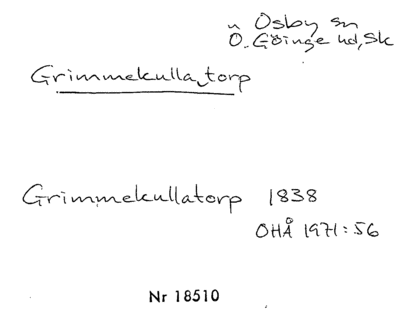 Osby sn
Ö. Göinge hd, Sk
Grimmekulla torp
Grimmekullatorp 1838
OHÅ 1971:56
Nr 18510